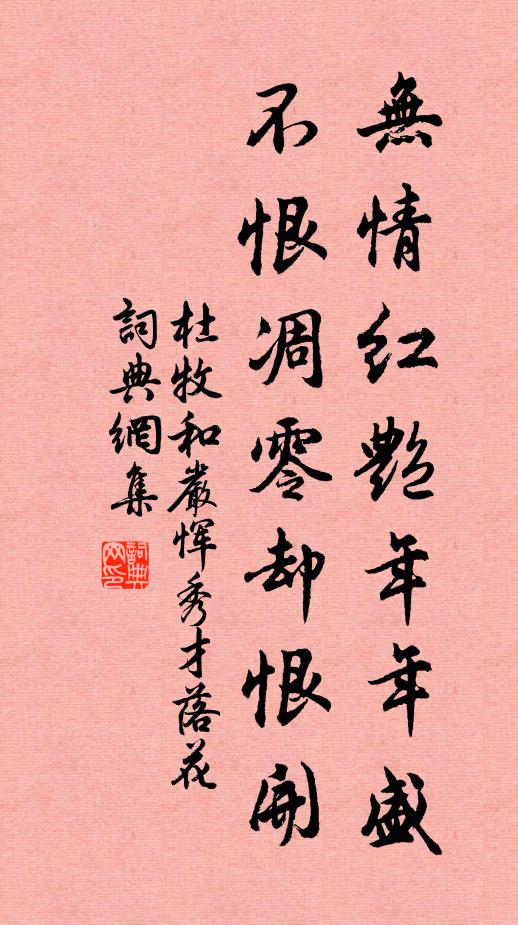 無情紅艷年年盛
不恨凋零却恨開
杜牧和嚴惲秀才落花
詞典網集
詞典網印